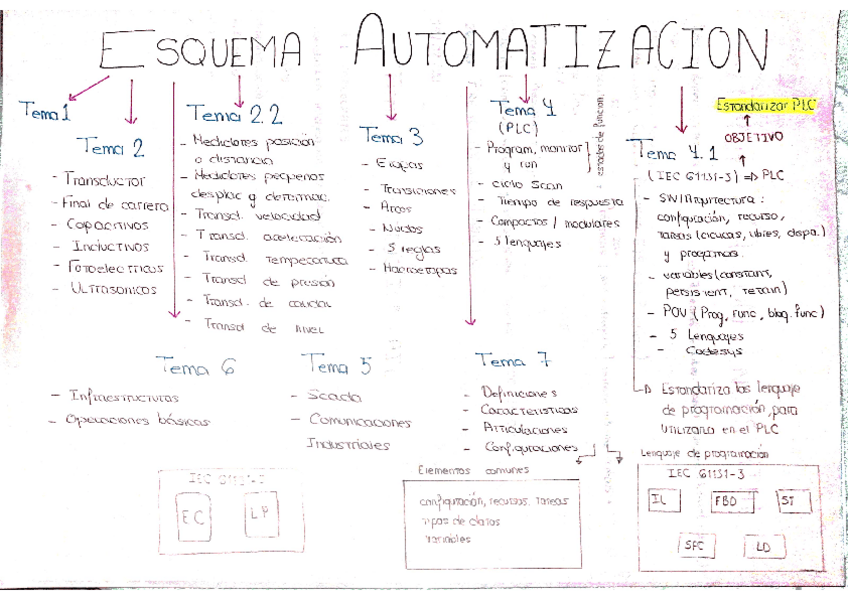 ESQUEMA AUTOMATIZACION
Tema 1
Tema 2
- Transductor
- Final de carrera
- Capacitivos
- Inductivos
- Fotoelectricos
- Ultrasonicos
Tema 2.2
- Medidores posición
o distancia
- Medidores pequeños
desplac y deformac.
- Transd. velocidad
- Transd. aceleración
- Transd. temperatura
- Transd. de presión
- Transd. de caudal
- Transd. de nivel
Tema 3
- Etapas
- Transiciones
- Arcos
- Nudos
- 5 reglas
- Macroetapas
Tema 4
(PLC)
- Program, monitor
y run
estados de funcion.
- ciclo Scan
- Tiempo de respuesta
- Compactos / modulares
- 5 lenguajes
Estandarizar PLC
OBJETIVO
Tema 4.1
- (IEC 61131-3) => PLC
- SW/Arquitectura :
configuración, recurso,
tareas (cíclicas, libres, dispa.)
y programas.
- variables (constant,
persistent, retain)
- POU (Prog, Func, bloq. func)
- 5 Lenguajes
- Codesys
Estandariza los lenguaje
de programación, para
utilizarlo en el PLC
Tema 6
- Infraestructuras
- Operaciones básicas
Tema 5
- Scada
- Comunicaciones
Industriales
Tema 7
- Definiciones
- Características
- Articulaciones
- Configuraciones
IEC 61131-3
EC
LP
Elementos comunes
configuración, recursos. tareas
tipos de datos
variables
Lenguaje de programación
IEC 61131-3
IL
FBD
ST
SFC
LD